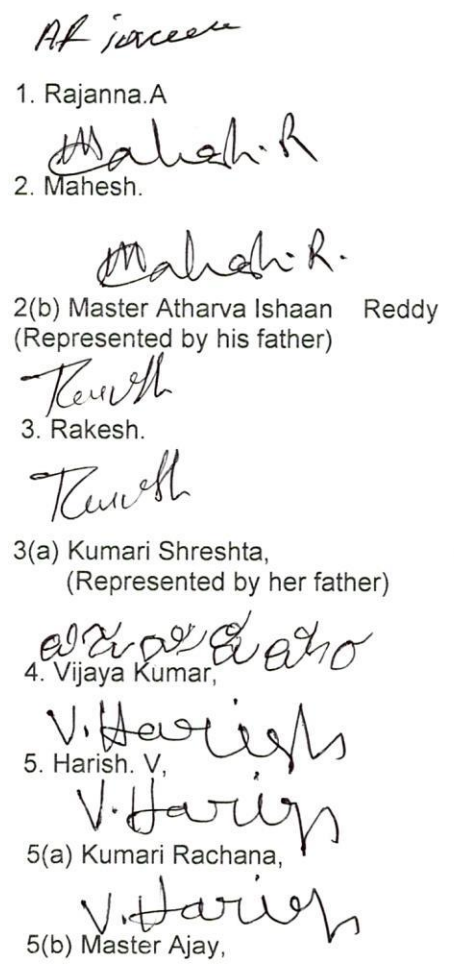 1. Rajanna.A
Mahesh.R
2. Mahesh.
Mahesh.R.
2(b) Master Atharva Ishaan Reddy
(Represented by his father)
3. Rakesh.
3(a) Kumari Shreshta,
(Represented by her father)
4. Vijaya Kumar,
V.Harish
5. Harish. V,
V.Harish
5(a) Kumari Rachana,
V.Harish
5(b) Master Ajay,